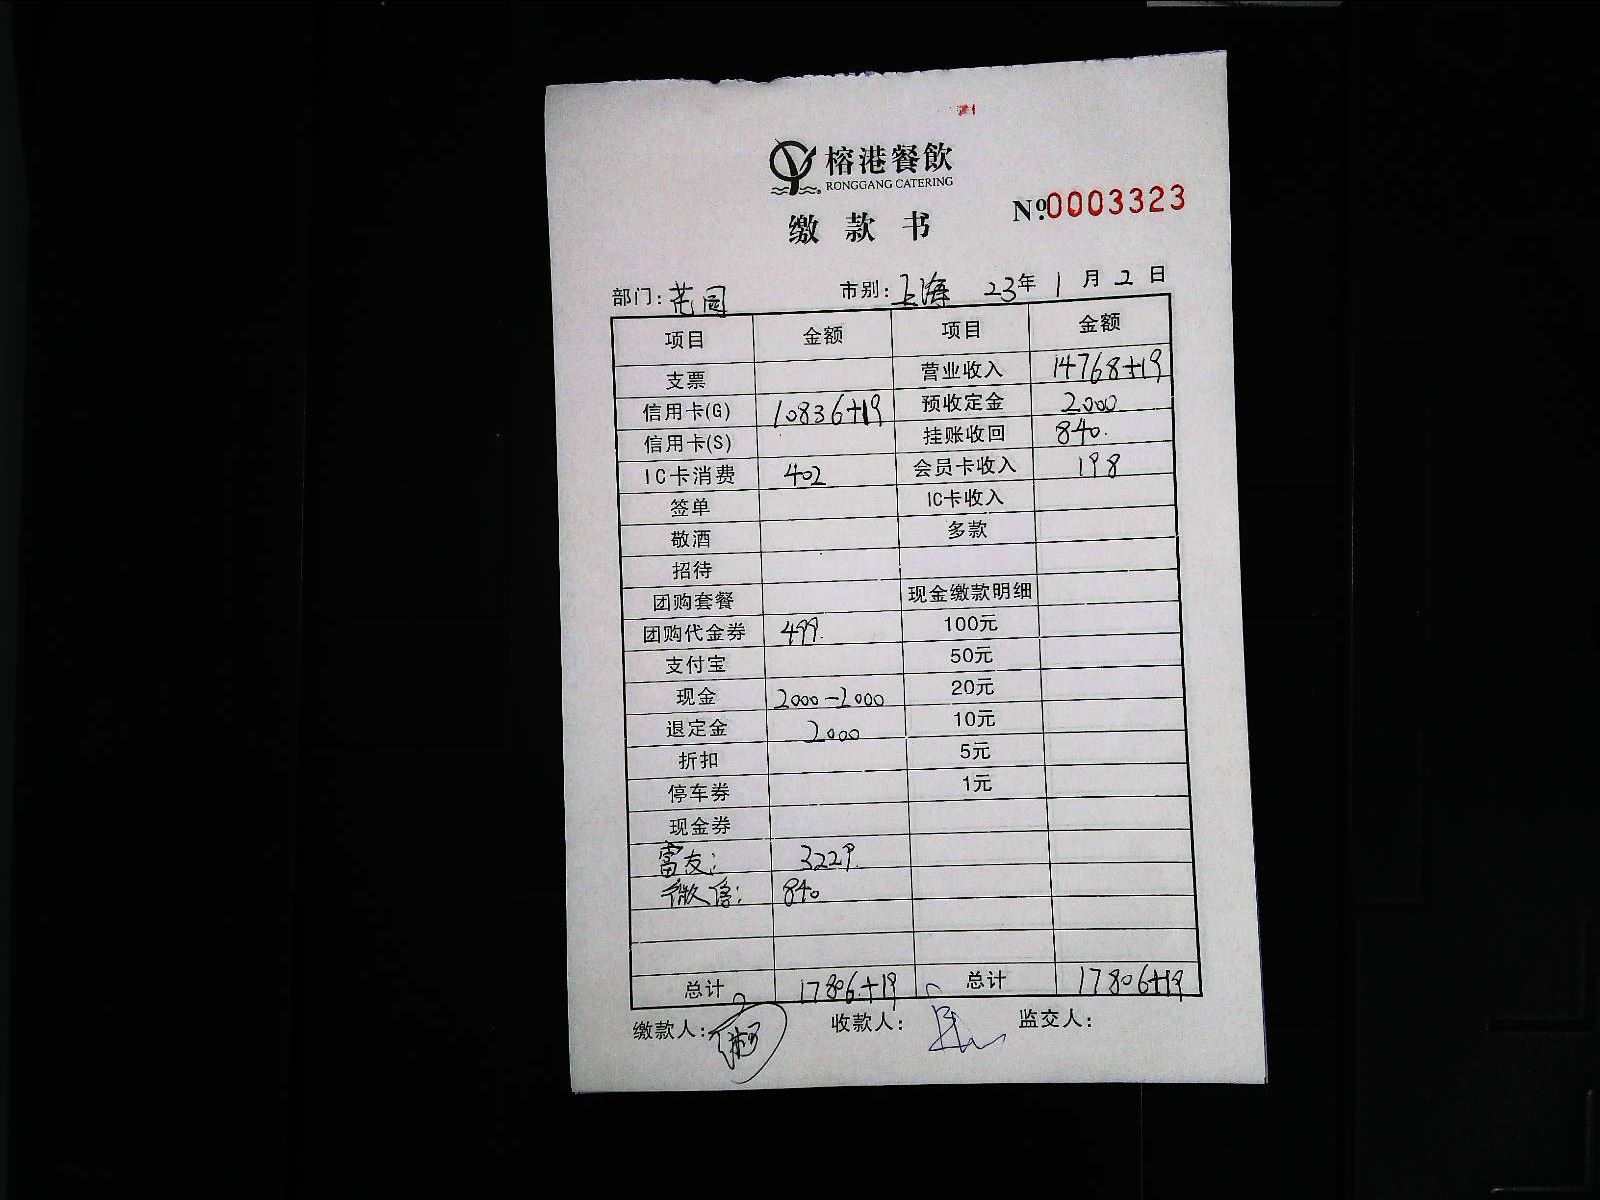 榕港餐飲
RONGGANG CATERING
缴款书 Nº.0003323
部门: 花园 市别: 上海 23年 1月 2日
项目 金额 项目 金额
支票 营业收入 14768+19
信用卡(G) 10836+19 预收定金 2000
信用卡(S) 挂账收回 840.
IC卡消费 402 会员卡收入 198
签单 IC卡收入
敬酒 多款
招待
团购套餐 现金缴款明细
团购代金券 499. 100元
支付宝 50元
现金 2000-2000 20元
退定金 2000 10元
折扣 5元
停车券 1元
现金券
富友: 3229.
微信: 840
总计 17806+19 总计 17806+19
缴款人: 收款人: 监交人: